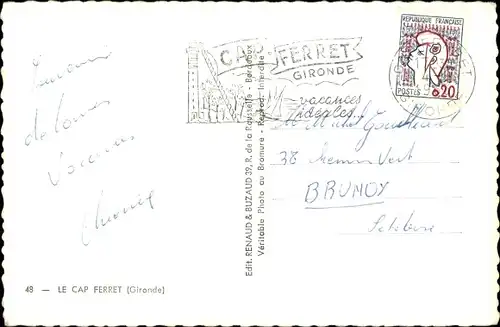 REPUBLIQUE FRANÇAISE
POSTES 0,20
CAP FERRET
GIRONDE
vacances
idéales
Souvenir
de bonnes
Vacances
38 Chemin Vert
BRUNOY
Edit. RENAUD & BUZAUD 39, R. de la Rousselle - Bordeaux
Véritable Photo au Bromure - Reprod. Interdite
48 — LE CAP FERRET (Gironde)